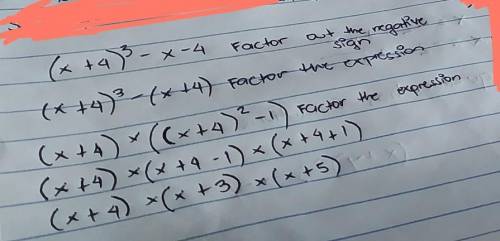 (x + 4)³ - x - 4 Factor out the negative sign
(x + 4)³ - (x + 4) Factor the expression
(x + 4) × ((x + 4)² - 1) Factor the expression
(x + 4) × (x + 4 - 1) × (x + 4 + 1)
(x + 4) × (x + 3) × (x + 5)